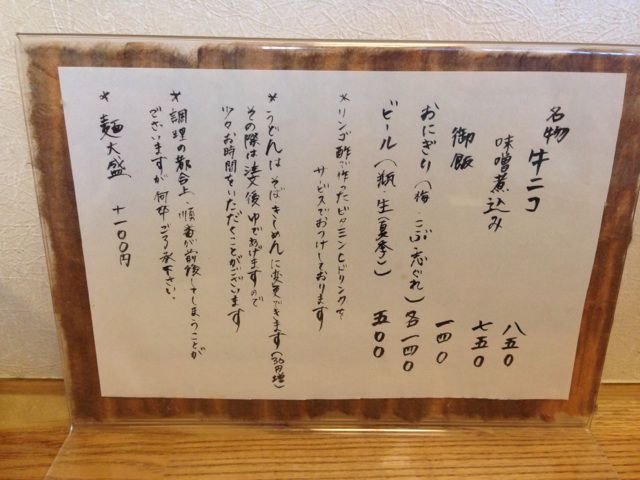 名物 牛ニコ 八五〇
味噌煮込み 七五〇
御飯 一四〇
おにぎり(梅・こぶ・志ぐれ) 各一四〇
ビール(瓶・生(夏季)) 五〇〇
*リンゴ酢で作ったビタミンCドリンクを
サービスでおつけしております
*うどんはそばきしめんに変更できます(30円増)
その際は注文後ゆであげますので
少々お時間をいただくことがございます
*調理の都合上、順番が前後してしまうことが
ございますが何卒ご了承下さい。
*麺大盛 +一〇〇円